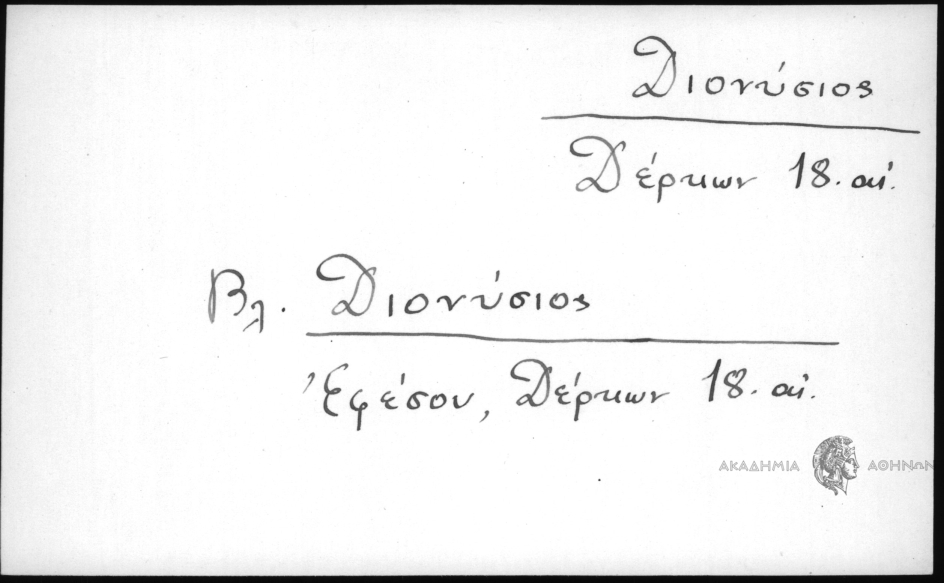 Διονύσιος
Δέρκων 18. αἰ.
Βλ. Διονύσιος
Ἐφέσου, Δέρκων 18. αἰ.
ΑΚΑΔΗΜΙΑ ΑΘΗΝΩΝ